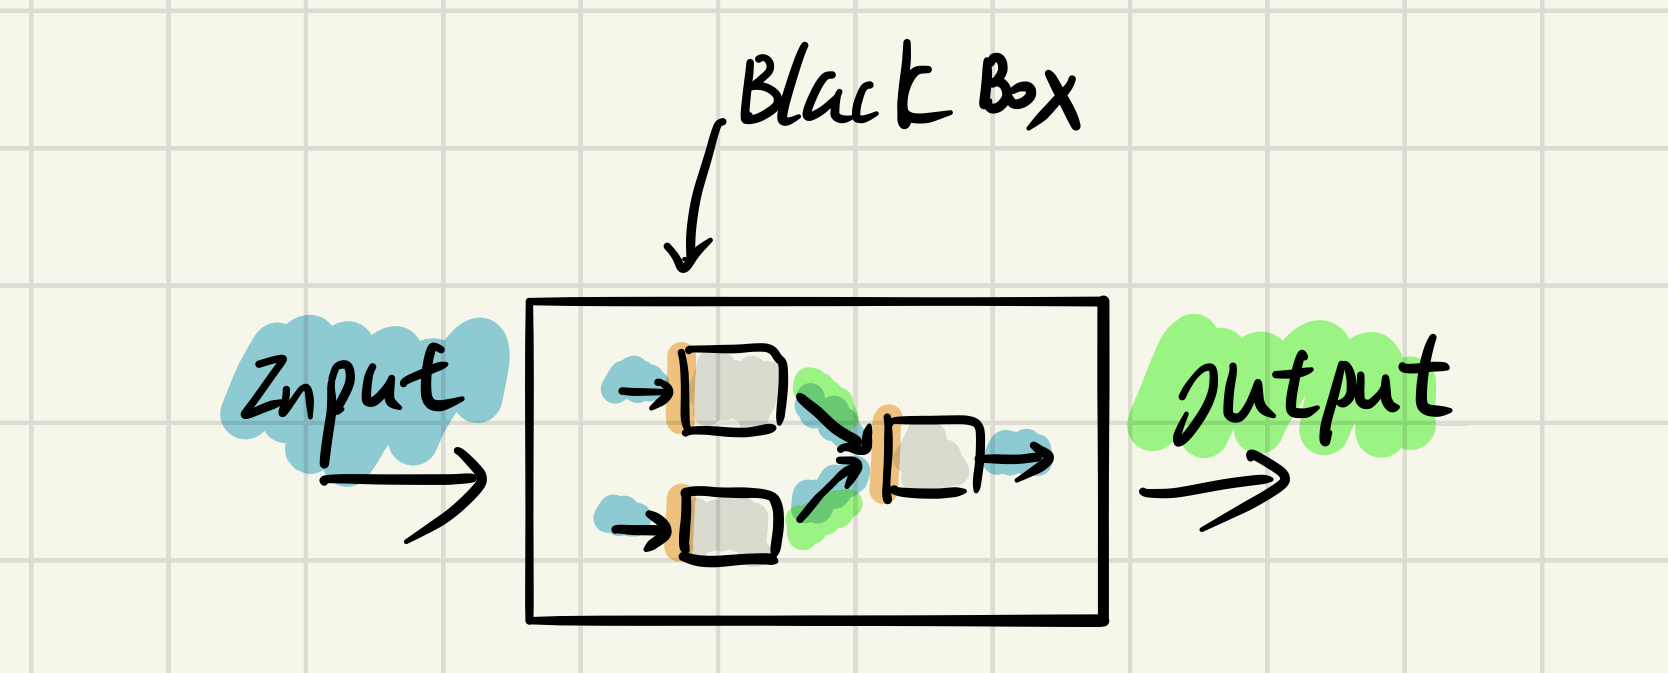 Black Box
Input
Output